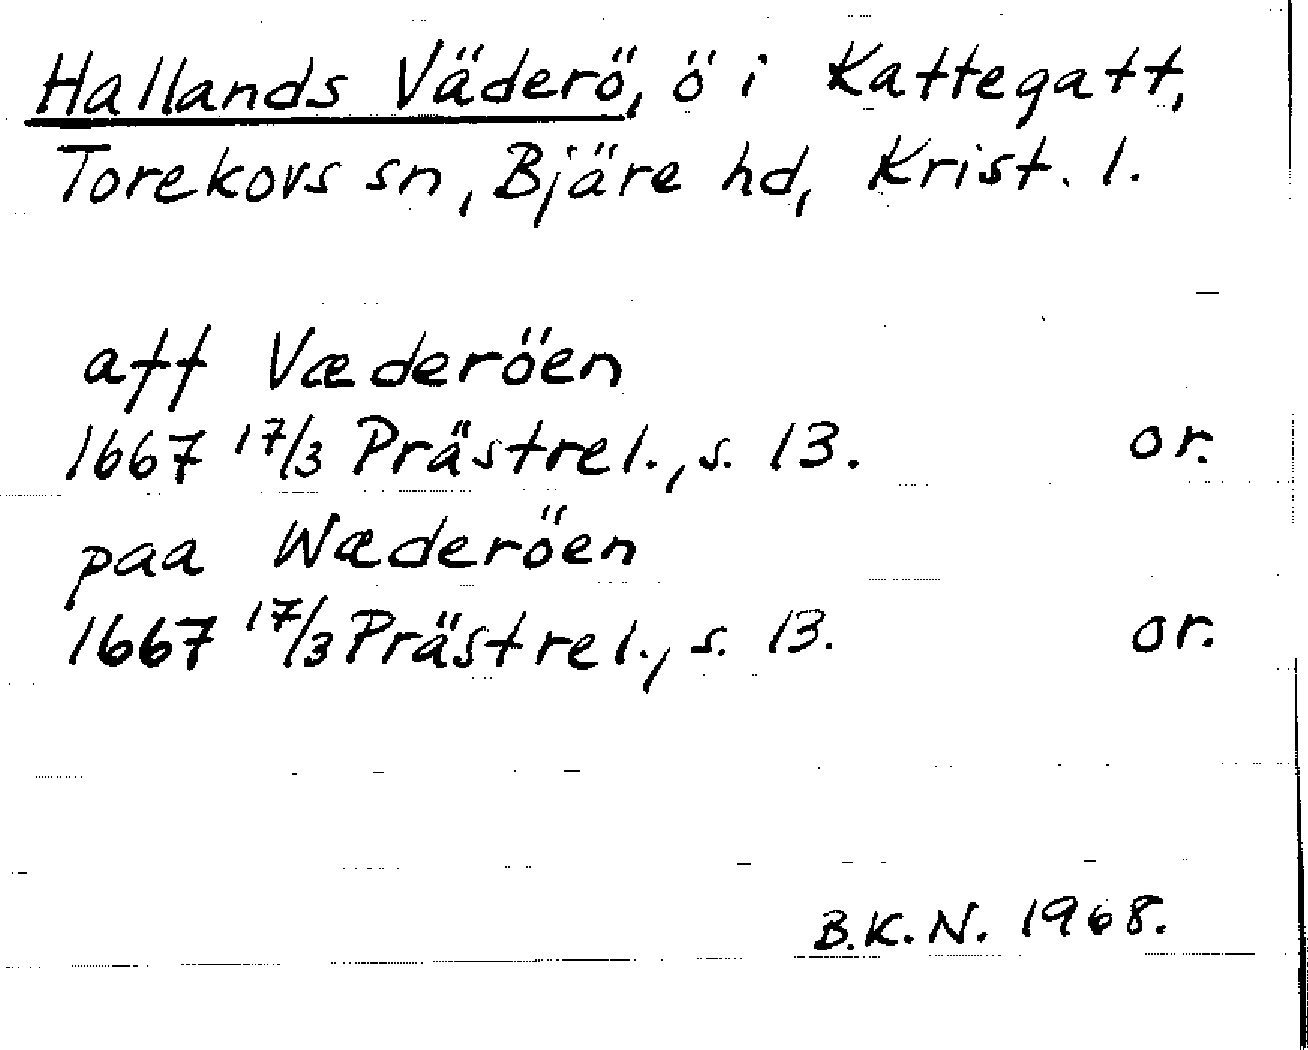 Hallands Väderö, ö i Kattegatt,
Torekovs sn, Bjäre hd, Krist. l.
aff Væderöen
1667 17/3 Prästrel., s. 13. or.
paa Wæderöen
1667 17/3 Prästrel., s. 13. or.
B.K.N. 1968.